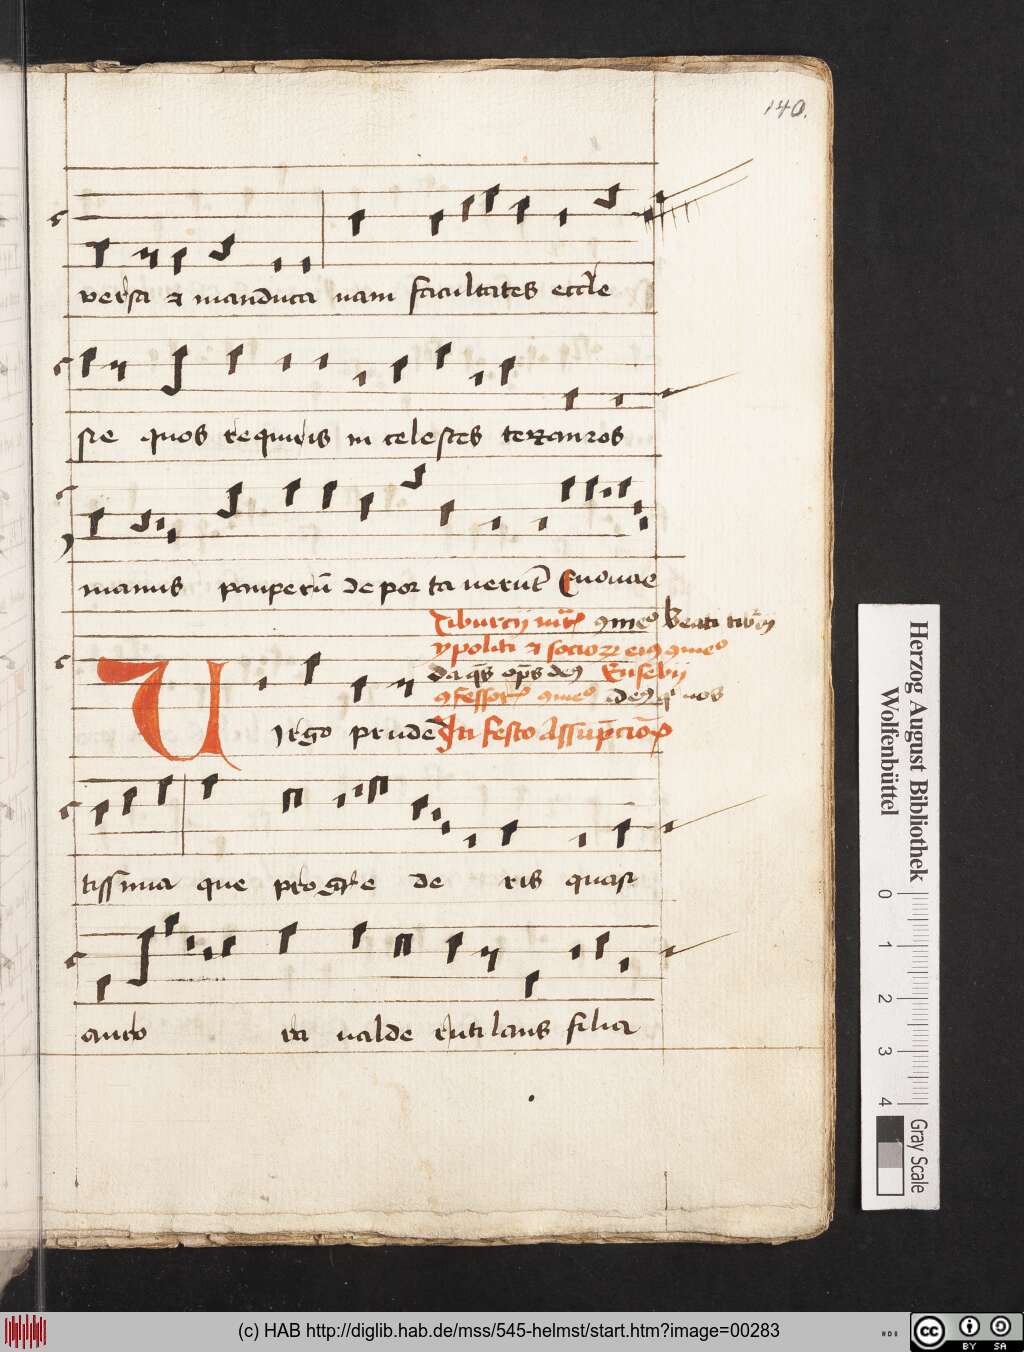 140.
versa et manduca nam facultates eccle
sie quos requiris in celestes tezauros
manus pauperū de por ta verūt Euouae
Tiburcij mr̄s 9meo Beati tibrcij
ypoliti et socioꝝ eiꝰ 9meo
da qs̄ op̄s deꝰ Eusebij
9fessoris 9meo deꝰ qi nos
Irgo prudē In festo Assūpcōis
tissima que progrede ris quasi
auro ra valde rutilans filia
Herzog August Bibliothek
Wolfenbüttel
0 1 2 3 4
Gray Scale
(c) HAB http://diglib.hab.de/mss/545-helmst/start.htm?image=00283
cc BY SA